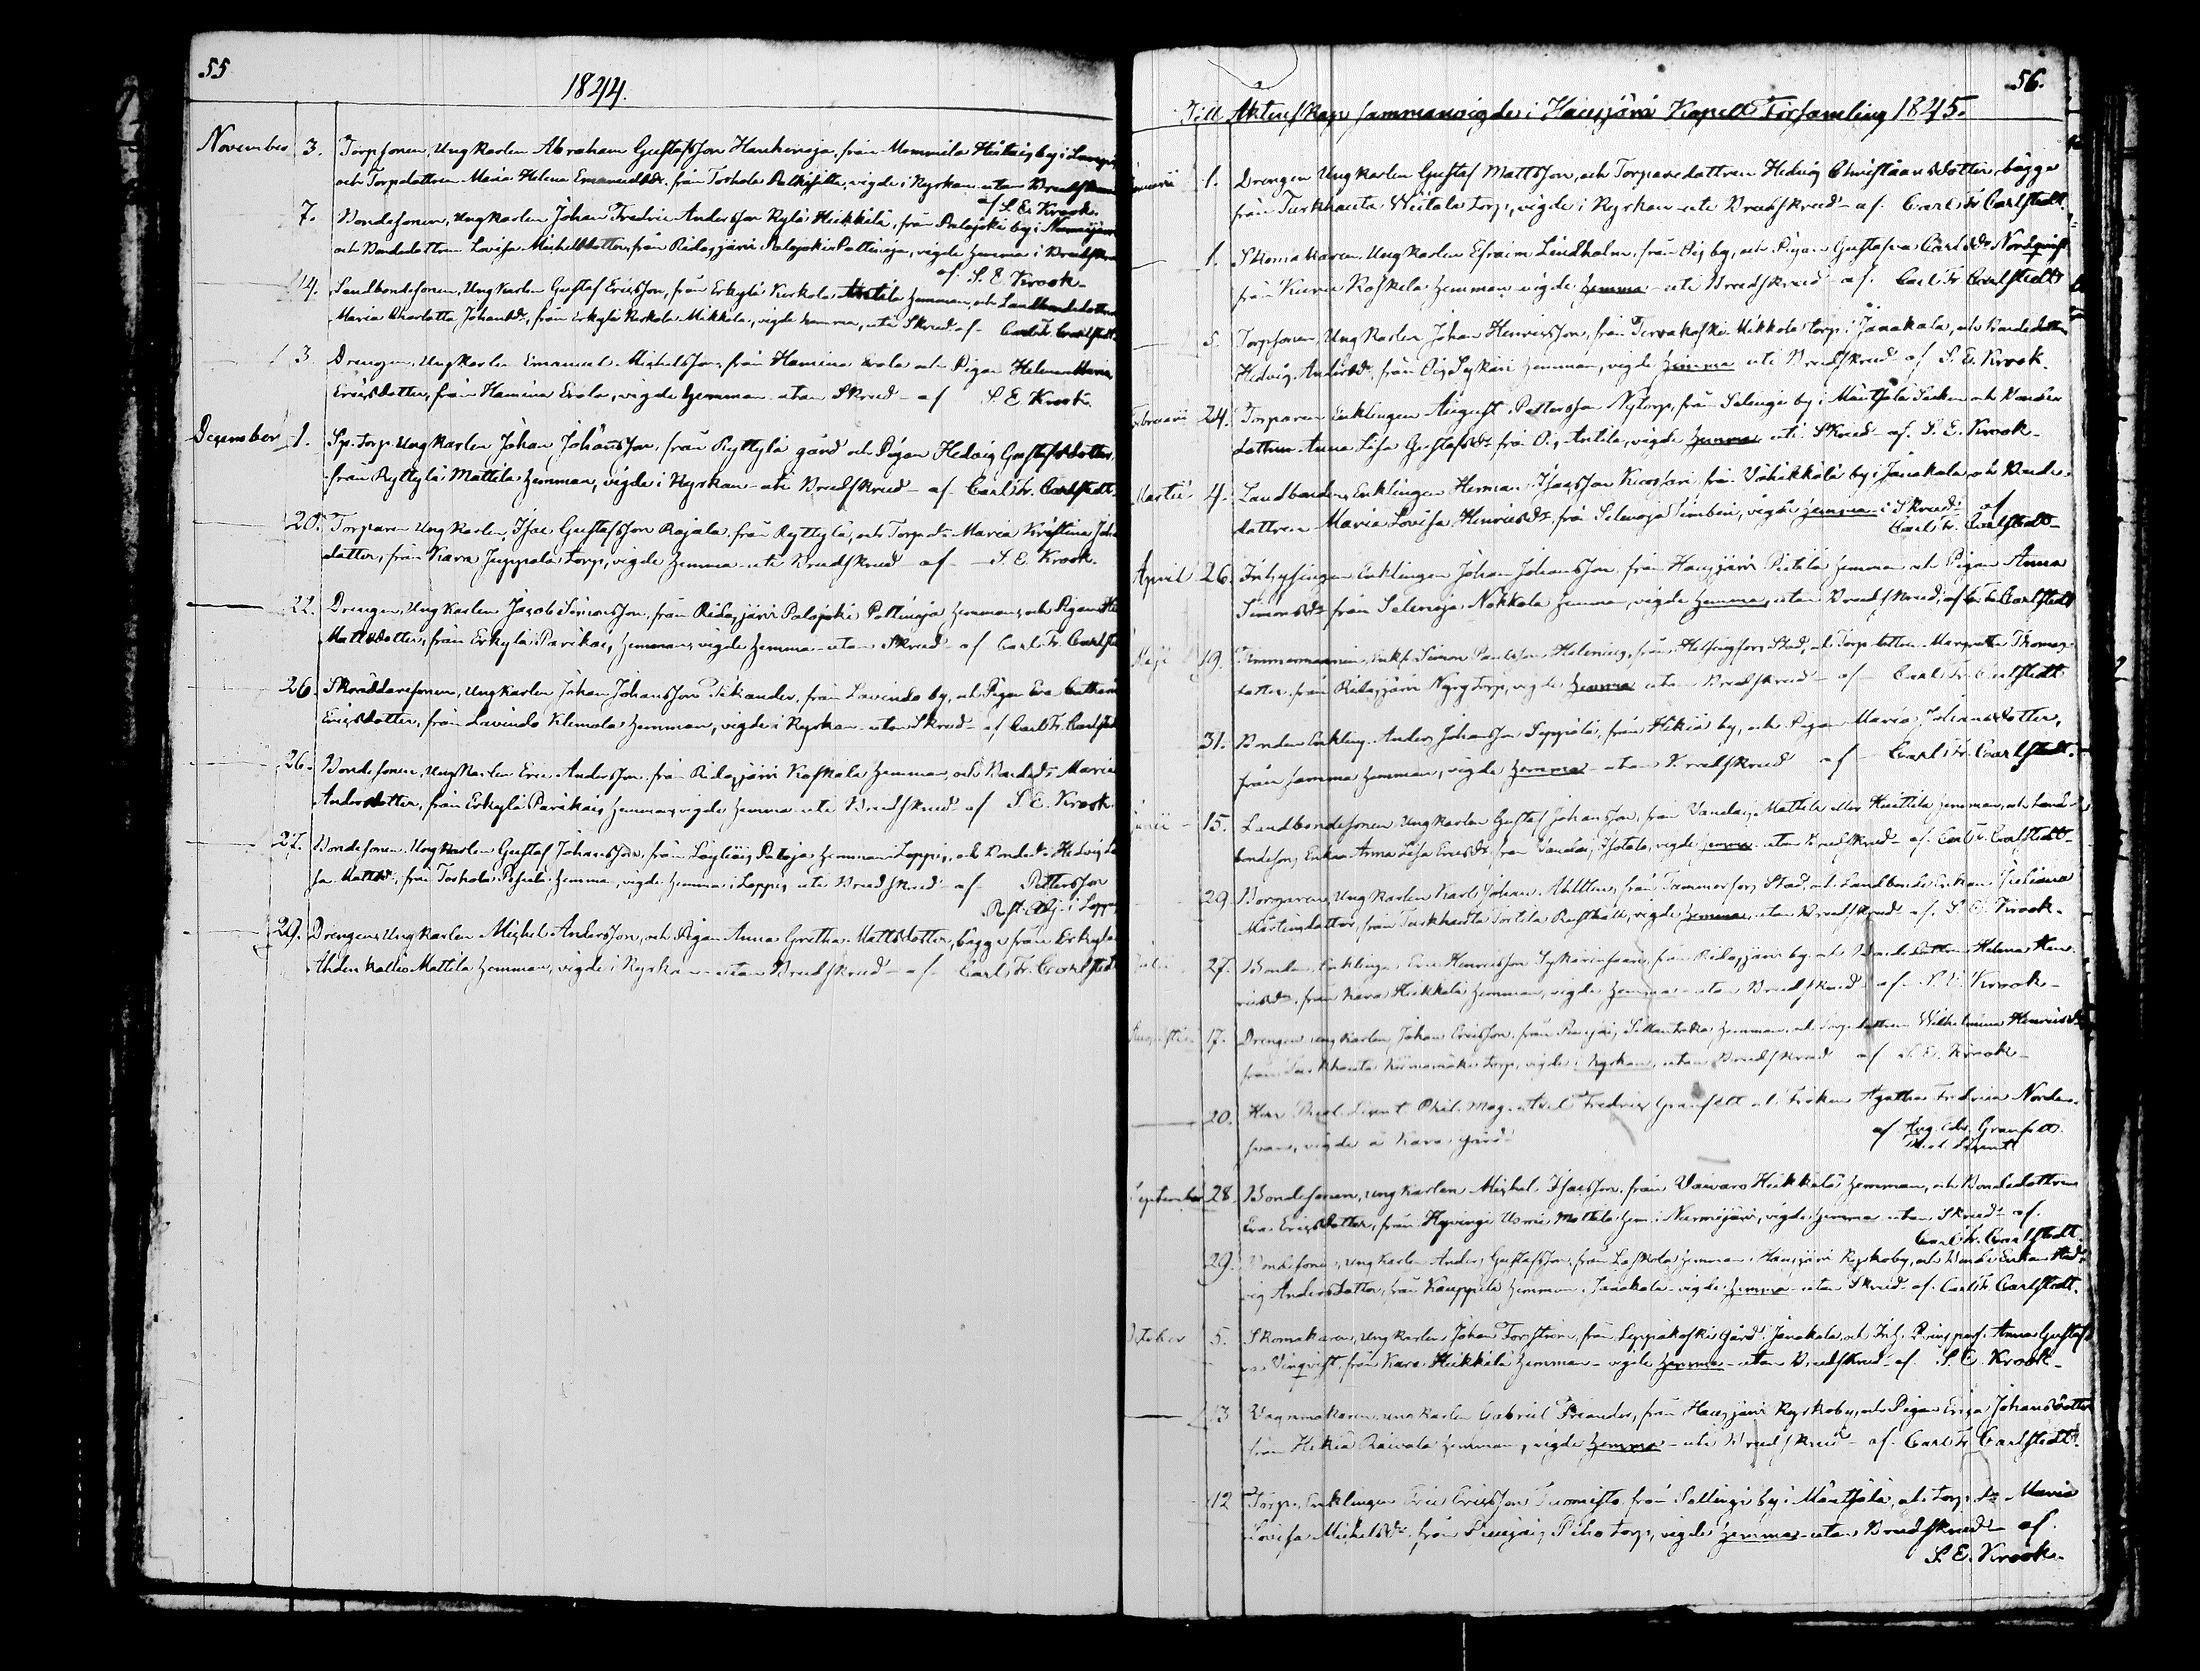 55
1844.
November 3. Torpsonen, Ungkarlen Abraham Gustafsson Hauhenoja, från Mommila Hietois by i Lampis
och Torpdottren Maria Helena Emanuelsdr. från Torhola, vigde i Kyrkan utan Brudskrud
af S. E. Krook.
7. Bondesonen, Ungkarlen Johan Fredric Andersson Kylä Heikkilä, från Palojoki by i Nurmijärvi
och Bondedottren Lovisa Michelsdotter, från Ridasjärvi Palojoki Paltinoja, vigde hemma i Brudskrud
af S. E. Krook.
14. Landbondesonen, Ungkarlen Gustaf Ericsson, från Erkylä Kurkola Anttila hemman, och Landbondedottren
Maria Charlotta Johansdr, från Erkylä Mikkola, vigde hemma, uti Skrud af Carl Fr. Carlstedt.
3 Drengen, Ungkarlen Emanuel Michelsson, från Hamina Erola och Pigan Helena Maria
Ericsdotter, från Hamina Erola, vigde hemma utan Skrud - af S E Krook.
December 1. Sp. torp. Ungkarlen Johan Johansson, från Ryttylä gård och Pigan Hedvig Gustafsdotter
från Ryttylä Mattila hemman, vigde i Kyrkan - uti Brudskrud - af Carl Fr. Carlstedt
20. Torparen Ungkarlen, Isac Gustafsson Rajala, från Ryttylä, och Torpdr Maria Kristina Johans
dotter, från Kara Juppala torp, vigde hemma - uti Brudskrud - af - S. E. Krook.
22. Drengen, Ungkarlen Jacob Simonsson, från Ridasjärvi Palojoki Paltinoja hemman, och Pigan
Mattsdotter, från Erkylä Parikas, hemman, vigde hemma - utan Skrud - af Carl Fr. Carlstedt
26. Skräddaresonen, Ungkarlen Johan Johansson Sikander, från Lavinda by, och Pigan Eva Catharina
Ericsdotter, från Lavinda Klemola hemman, vigde i Kyrkan - utan Skrud - af Carl Fr. Carlstedt
26. Bondesonen, Ungkarlen Eric Andersson, från Ridasjärvi Koskela hemman, och Bonded: Maria
Andersdotter, från Erkylä Parikas, hemman, vigde hemma - uti Brudskrud - af S. E. Krook.
27. Bondesonen, Ungkarlen Gustaf Johansson, från Läyliäis Paloja hemman Loppis, och Bonded: Hedvig Lo
sa Mattsdr, från Torhola hemman, vigde hemma i Loppis uti Brudskrud - af Pettersson
Past. Adj. i Loppis
29. Drengen, Ungkarlen Michel Andersson, och Pigan Anna Gretha Mattsdotter, bägge från Erkylä
Ahdenkallio Mattila hemman, vigde i Kyrkan - utan Brudskrud - af Carl Fr. Carlstedt
56.
Till Äktenskap sammanvigde i Hausjärvi Kapell Församling 1845.
Januarii 1. Drengen Ungkarlen Gustaf Mattsson, och Torparedottren Hedvig Christiansdotter, bägge
från Turkhauta Wiitala torp, vigde i Kyrkan - uti Brudskrud - af Carl Fr Carlstedt.
1. Skomakaren, Ungkarlen Efraim Lindholm, från Oj by, och Pigan Gustafva Carlsdr Nordqvist
från Kuru Koskela hemman vigde hemma - uti Brudskrud - af Carl Fr Carlstedt
5. Torpsonen, Ungkarlen Johan Henricsson, från Tervakoski Mikkola torp i Janakala, och Bondedottren
Hedvig Andersdr, från Oj Sykäri hemman, vigde hemma uti Brudskrud af S. E. Krook.
Februarii 24. Torparen Enklingen August Pettersson Nytorp, från Salinge by i Mäntsälä Socken och Bonde
dottren Anna Lisa Gustafsdr från Oj Anttila, vigde hemma uti Skrud - af S. E. Krook.
Martii 4. Landbonden, Enklingen Herman Isacsson Kuosari från Vähikkälä by i Janakala och Bonde
dottren Maria Lovisa Henricsdr. från Selenoja Simberi, vigde hemma i Skrud af
Carl Fr. Carlstedt
April 26. Inhysingen Enklingen Johan Johansson från Hausjärvi Pietilä hemman och Pigan Anna
Simonsdr från Selenoja Nokkola hemman, vigde hemma, utan Brudskrud, af C. Fr. Carlstedt
Maji 19. Timmermannen, Enkl. Simon Paulsson Helenius, från Helsingfors Stad, och Torpdottren Margretha Thomas
dotter, från Ridasjärvi Nyrg torp, vigde hemma utan Brudskrud - af Carl Fr. Carlstedt
31. Bonden Enkling. Anders Johansson Seppälä, från Hikiä by, och Pigan Maria Johansdotter,
från samma hemman, vigde hemma - utan Brudskrud af - Carl Fr. Carlstedt.
Junii 15. Landbondesonen Ungkarlen Gustaf Johansson, från Vandas Mattila eller Huttila hemman, och Land-
bondesons Enkan Anna Lisa Ericsdr. från Vandas Isotalo, vigde hemma utan Brudskrud - af Carl Fr. Carlstedt
29. Borgaren, Ungkarlen Karl Johan Ahlsten, från Tammerfors Stad, och Landbonde Enkan Juliana
Mårtensdotter, från Turkhauta Torttila Rusthåll, vigde hemma, utan Brudskrud af S. E. Krook.
Julii 27. Bonden, Enklingen Eric Henricsson Sykärinsaari, från Ridasjärvi by, och Bondedottren Helena Hen
ricsdr, från Kara Heikkilä hemman, vigde hemma - utan Brudskrud af S. E. Krook.
Augustii 17. Drengen ungkarlen Johan Ericsson, från Puujåis hemman, och Torpdottren Wilhelmina Henricsdr
från Turkhauta Kormumäki torp, vigde i Kyrkan, utan Brudskrud af S. E. Krook.
20. Herr Theol. Licent Phil. Mag. Axel Fredric Granfelt och Fröken Agatha Fredrica Norden-
svan, vigde å Kara gård af Aug. Edv. Granfelt
Theol. Licent
September 28. Bondesonen, ungkarlen Michel Isacsson, från Vaivaro Heikkilä hemman, och Bondedottren
Eva Ericsdotter, från Hyvinge Uomi Mattila hem. i Nurmijärvi, vigde hemma utan Skrud - af
Carl Fr. Carlstedt.
29. Bondesonen, ungkarlen Anders Gustafsson, från Laskola hemman Hausjärvi Kyrkoby, och Bonde Enkan Hed-
vig Andersdotter, från Kauppila hemman i Janakala - vigde hemma - utan Skrud - af Carl Fr. Carlstedt.
October 5. Skomakaren, ungkarlen Johan Forsström, från Leppäkoski gård i Janakala, och Inh. Anna Gustaf
va Vinqvist, från Kara Heikkilä hemman - vigde hemma - utan Brudskrud - af S. E. Krook -
13 Vagnmakaren, ungkarlen Gabriel Frianders, från Hausjärvi Kyrkoby, och Pigan Erica Johansdotter
från Hikiä Raivala hemman, vigde hemma - uti Brudskrud - af Carl Fr Carlstedt.
12 Torp. Enklingen Eric Ericsson Tuomisto, från Sallinge by i Mäntsälä, och torp dr Maria
Lovisa Michelsdr. från Puujåis Piho torp, vigde hemma - utan Brudskrud - af
S. E. Krook.